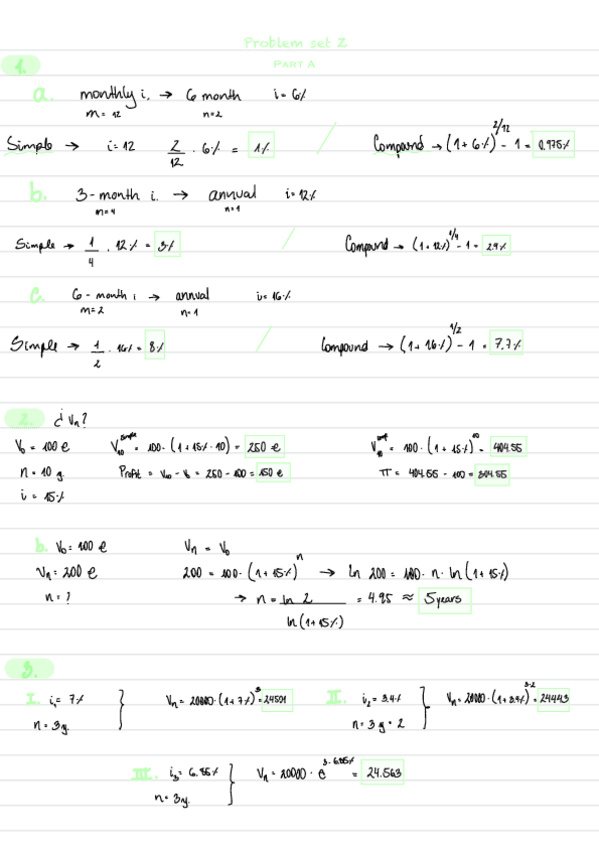 Problem set 2
PART A
1.
a. monthly i. → 6 month i = 6%
m = 12 n=2
Simple → i=12 2/12 · 6% = 1% / Compound → (1+6%)^2/12 - 1 = 0.975%
b. 3-month i. → annual i=12%
m=4 n=1
Simple → 1/4 · 12% = 3% / Compound → (1+12%)^1/4 - 1 = 2.9%
c. 6-month i → annual i=16%
m=2 n=1
Simple → 1/2 · 16% = 8% / Compound → (1+16%)^1/2 - 1 = 7.7%
2. ¿Vn?
V0 = 100 e V10^simple = 100·(1+15%·10) = 250 e V10 = 100·(1+15%)^10 = 404.55
n = 10 y. Profit = V10 - V0 = 250 - 100 = 150 e π = 404.55 - 100 = 304.55
i = 15%
b. V0 = 100 e Vn = V0
Vn = 200 e 200 = 100·(1+15%)^n → ln 200 = 100· n· ln(1+15%)
n = ? → n = ln 2 / ln(1+15%) = 4.95 ≈ 5 years
3.
I. i1 = 7% } Vn = 20000·(1+7%)^3 = 24501 II. i2 = 3.4% } Vn = 20000·(1+3.4%)^3·2 = 24443
n = 3y. n = 3y · 2
III. i3 = 6.85% } Vn = 20000· e^3·6.85% = 24.563
n = 3y.